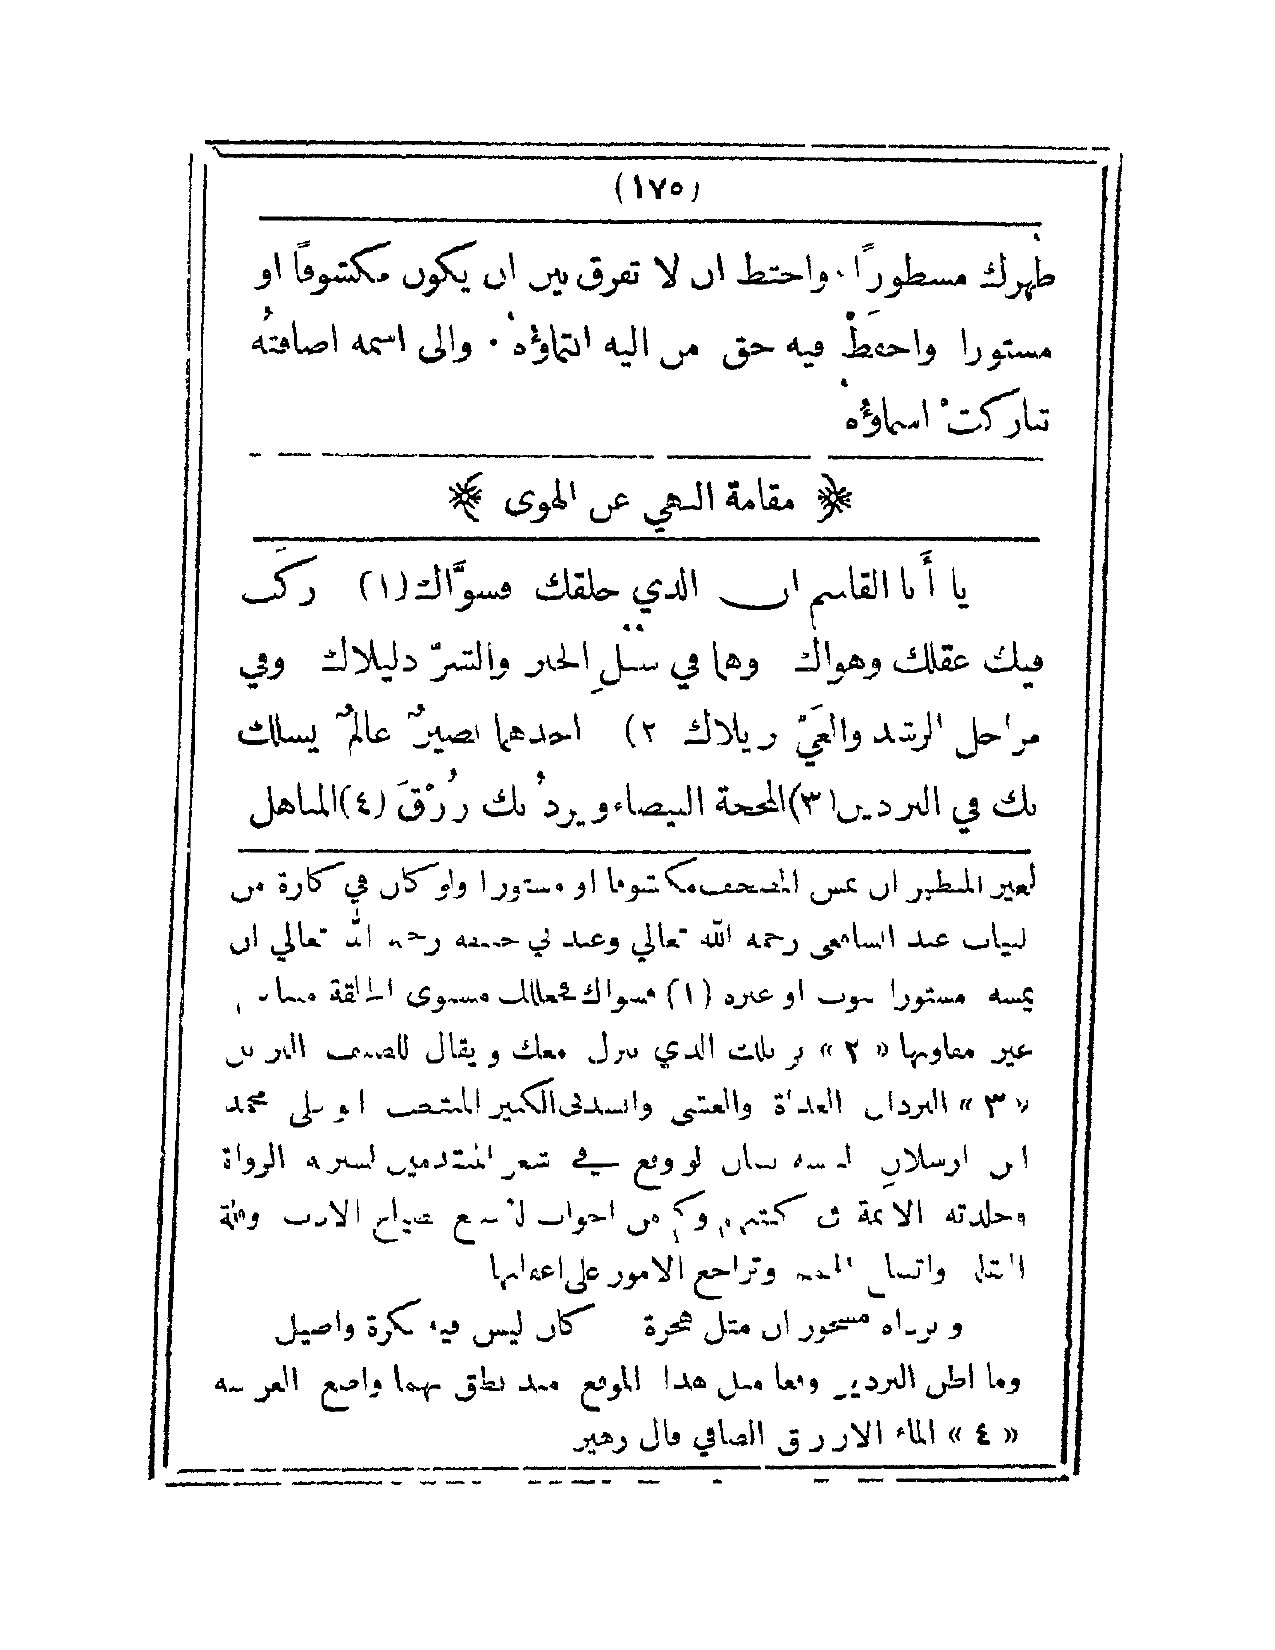 (١٧٥)
ظهرك مسطورًا · واحتط ان لا تفرق بين ان يكون مكشوفًا او
مستورا واحفظْ فيه حق من اليه انتماؤهُ · والى اسمه اضافتُه
تباركتْ اسماؤهُ
﴿ مقامة النهي عن الهوى ﴾
يا أَبا القاسم ان الذي خلقك فسوَّاك (١) ركَّب
فيك عقلك وهواك وهما في سبيلِ الخير والشرّ دليلاك وفي
مراحل الرشد والغَيّ نزيلاك (٢) احدهما بصيرٌ عالمٌ يسلك
بك في البردين (٣) المحجة البيضاء ويردُ بك زُرْقَ (٤) المناهل
لغير المتطهر ان يمس المصحف مكشوفا او مستورا ولو كان في كارة من
الثياب عند الشافعي رحمه الله تعالى وعند ابي حنيفة رحمه الله تعالى ان
يمسه مستورا بثوب او غيره (١) فسواك فجعلك مستوى الخلقة
غير متفاوتها « ٢ » نزيلك الذي ينزل معك و يقال للضيف النزيل
« ٣ » البردان الغداة والعشي وانشدني الكبير المنتجب ابو علي محمد
ابن ارسلان لو وقع في شعر المتقدمين لسيره الرواة
وخلدته الائمة في كتبهم وكم من اخوات
وتراجع الامور على اعقابها
كان ليس فيه بكرة واصيل
وما اظن البردين وقعا مثل هذا الموقع منذ نطق بهما واضع العربية
« ٤ » الماء الازرق الصافي قال زهير